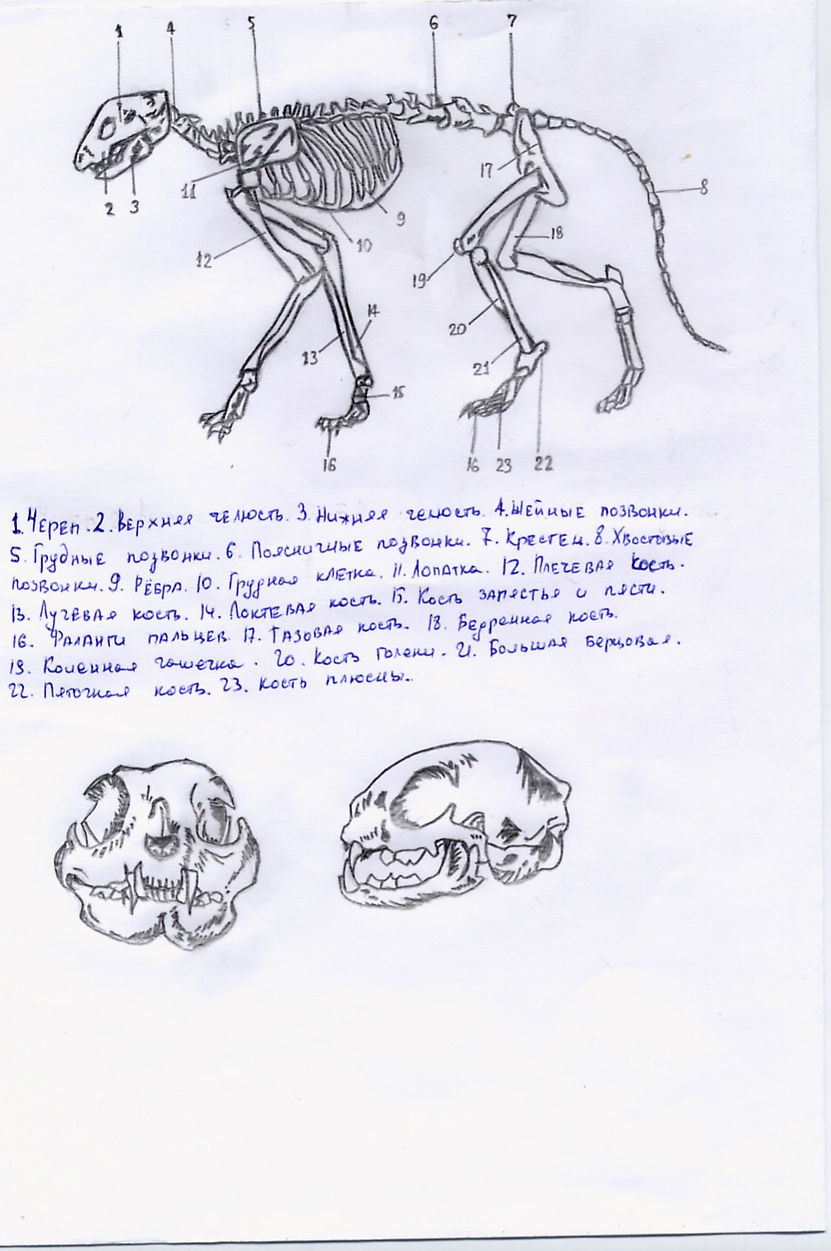 1 4 5 6 7
2 3 11 17 8
9
12 10 18
19
14
20
13 21
15
16 16 23 22
1. Череп. 2. Верхняя челюсть. 3. Нижняя челюсть. 4. Шейные позвонки.
5. Грудные позвонки. 6. Поясничные позвонки. 7. Крестец. 8. Хвостовые
позвонки. 9. Рёбра. 10. Грудная клетка. 11. Лопатка. 12. Плечевая кость.
13. Лучевая кость. 14. Локтевая кость. 15. Кость запястья и пясти.
16. Фаланги пальцев. 17. Тазовая кость. 18. Бедренная кость.
19. Коленная чашечка. 20. Кость голени. 21. Большая берцовая.
22. Пяточная кость. 23. Кость плюсны.